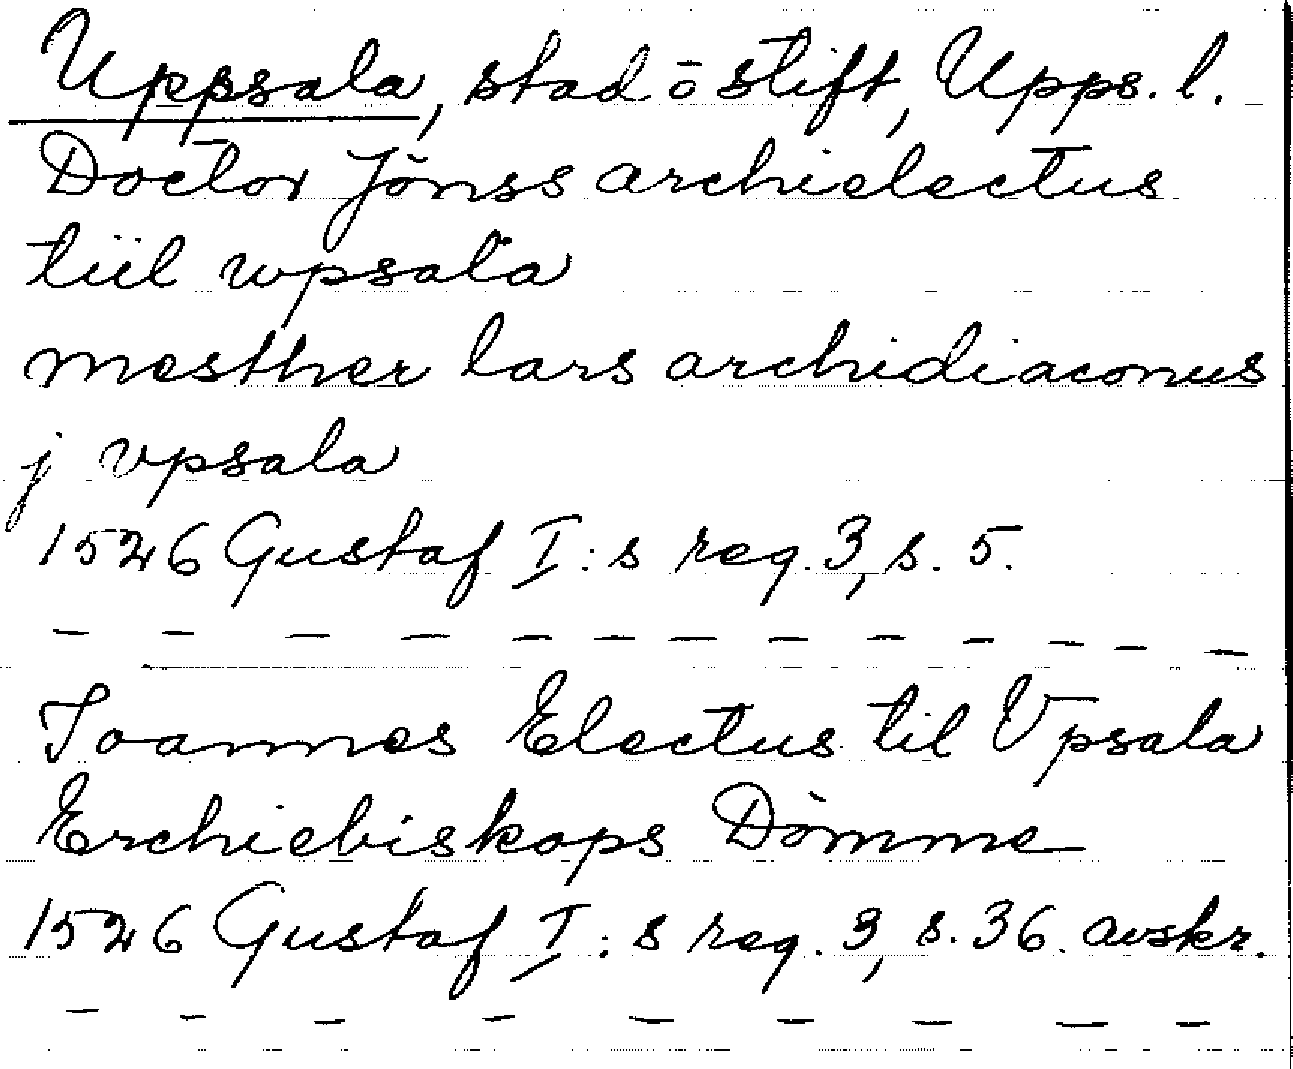 Uppsala, stad ō stift, Upps. l.
Doctor Jönss archielectus
tiil wpsala
mesther lars archidiaconus
j vpsala
1526 Gustaf I:s reg. 3, s. 5.
— — — — — — — — — — — — —
Joannes Electus til Vpsala
Erchiebiskops Dömme
1526 Gustaf I:s reg. 3, s. 36. avskr.
— — — — — — — — —